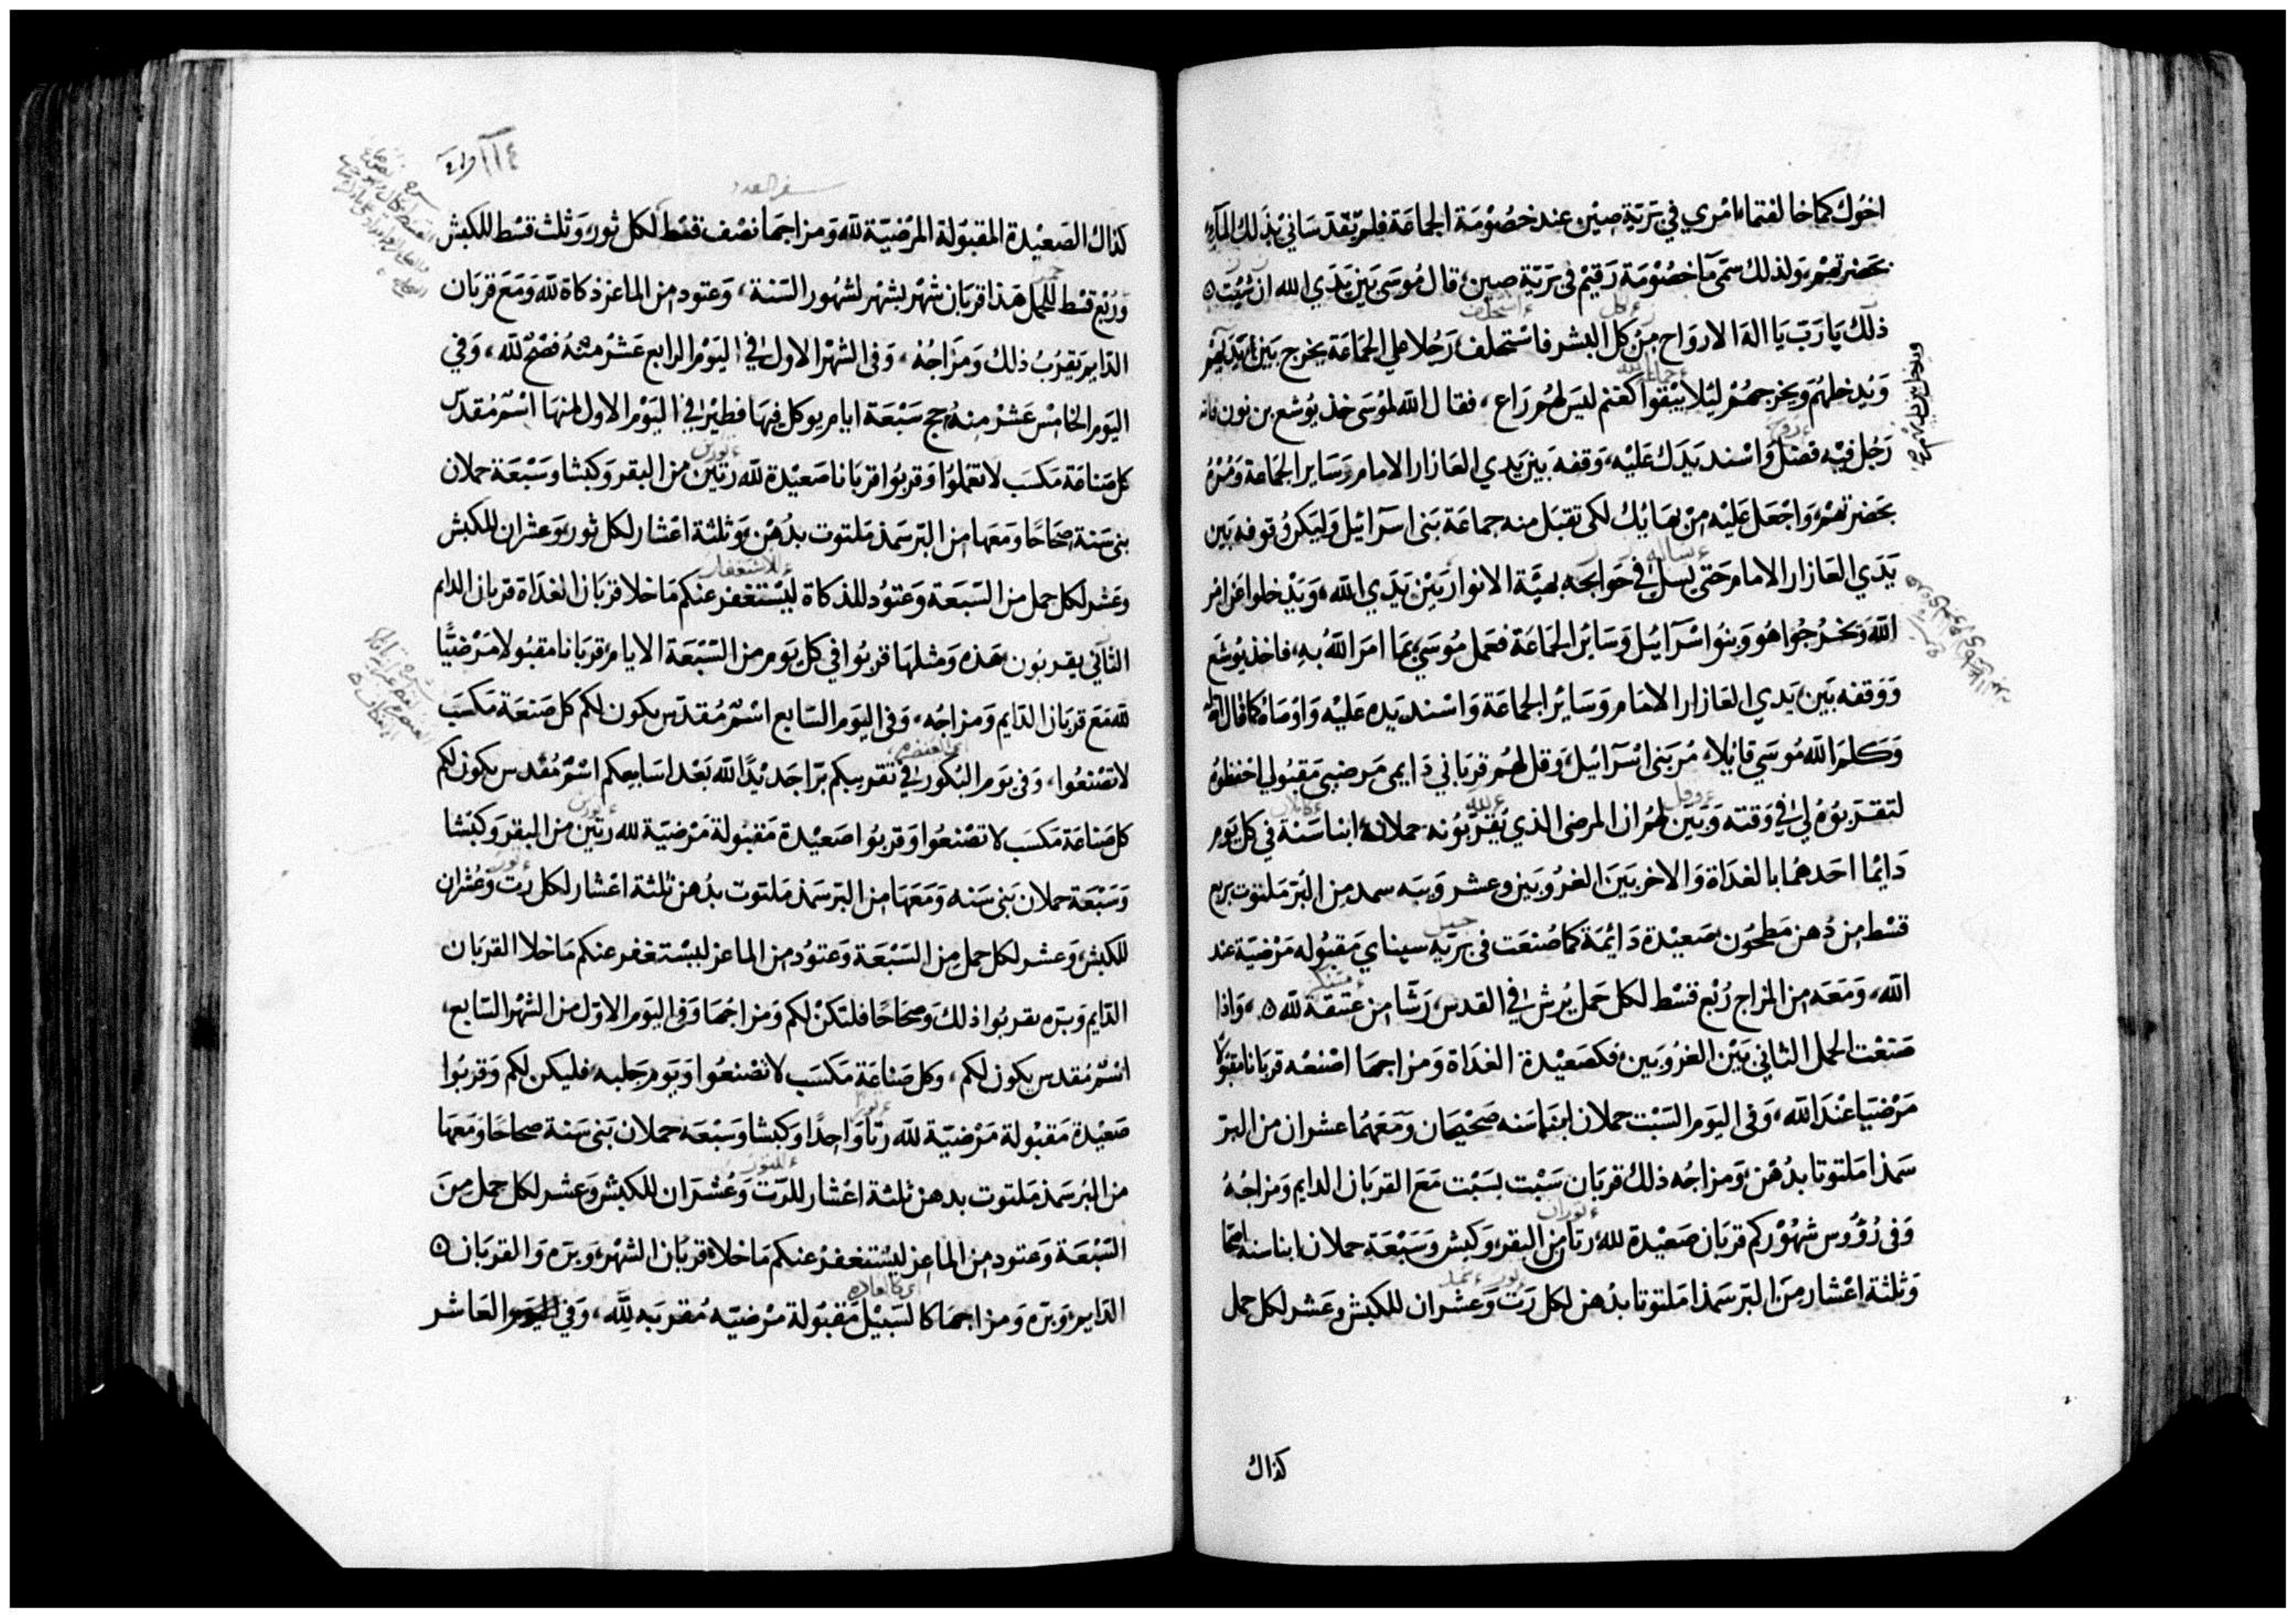 اخوك كما خالفتما امري في برية صين عند خصومة الجماعة فلم تقدساني بذلك المآء
بحضرتهم، ولذلك سمى ما خصومة رقيم في برية صين، قال موسى بين يدي الله ان
ذلك يا رب يا اله الارواح من كل البشر فاستحلف رجلا علي الجماعة يخرج بين ايديهم
ويدخلهم ويخرجهم ليلا يبقوا كغنم ليس لهم راع، فقال الله لموسى خذ يوشع بن نون فانه
رجل فيه فضل واسند يدك عليه، وقفه بين يدي العازار الامام وساير الجماعة ومره
بحضرتهم، واجعل عليه من بهايك لكى تقبل منه جماعة بنى اسرآئيل وليكن وقوفه بين
يدي العازار الامام حتى يسل في حوايجه بهيّة الانوار بين يدي الله، ويدخلوا عن امر
الله ويخرجوا هو وبنوا اسرآئيل وسائر الجماعة فعمل موسى بما امر الله به، فاخذ يوشع
ووقفه بين يدي العازار الامام وسائر الجماعة واسند يده عليه واوصاه كما قال الله
وكلم الله موسى قايلا، مر بنى اسرآئيل وقل لهم قرباني دايمى مرضيى مقبولي احفظوه
لتقربوه لي في وقته وبين لهم ان المرضى الذي يقربونه حملان ابنا سنة في كل يوم
دايما احدهما بالغداة والاخر بين الغروبين وعشر ويبه سمد من البر ملتوت بربع
قسط من دهن مطحون صعيدة دائمة كما صنعت في برية سيناي مقبوله مرضية عند
الله، ومعه من المزاج ربع قسط لكل حمل يرش في القدس رشا من عتقة لله، واذا
صنعت الحمل الثاني بين الغروبين فكصعيدة الغداة ومزاجها اصنعه قربانا مقبولا
مرضيا عند الله، وفى اليوم السبت حملان ابنا سنه صحيحان ومعهما عشران من البر
سمذا ملتوتا بدهن ومزاجه ذلك قربان سبت بسبت مع القربان الدايم ومزاجه
وفى رؤوس شهوركم قربان صعيدة لله رتا من البقر وكبش وسبعة حملان ابنا سنه صحاحا
وثلثة اعشار من البر سمذا ملتوتا بدهن لكل رت وعشران للكبش وعشر لكل حمل
كذاك
سفر العدد
كذاك الصعيدة المقبولة المرضية لله ومزاجها نصف قسط لكل ثور وثلث قسط للكبش
وربع قسط للحمل هذا قربان شهر بشهر لشهور السنة، وعتود من الماعز ذكاة لله ومع قربان
الدايم يقرب ذلك ومزاجه، وفى الشهر الاول في اليوم الرابع عشر منه فصح لله، وفي
اليوم الخامس عشر منه حج سبعة ايام يوكل فيها فطير في اليوم الاول منها اسم مقدس
كل صناعة مكسب لا تعملوا وقربوا قربانا صعيدة لله رتين من البقر وكبشا وسبعة حملان
بنى سنة صحاحا ومعها من البر سمذ ملتوت بدهن وثلثة اعشار لكل ثور وعشران للكبش
وعشر لكل حمل من السبعة وعتود للذكاة ليستغفر عنكم ما خلا قربان الغداة قربان الدايم
الثآني يقربون هذه ومثلها قربوا في كل يوم من السبعة الايام قربانا مقبولا مرضيا
لله مع قربان الدايم ومزاجه، وفى اليوم السابع اسم مقدس يكون لكم كل صنعة مكسب
لا تصنعوا، وفى يوم البكور في تقريبكم برا جديدا لله بعد اسابيعكم اسم مقدس يكون لكم
كل صناعة مكسب لا تصنعوا وقربوا صعيدة مقبولة مرضية لله رتين من البقر وكبشا
وسبعة حملان بنى سنه ومعها من البر سمذ ملتوت بدهن ثلثة اعشار لكل رت وعشران
للكبش وعشر لكل حمل من السبعة وعتود من الماعز ليستغفر عنكم ما خلا القربان
الدايم وبره يقربوا ذلك وصحاحا فلتكن لكم ومزاجها وفى اليوم الاول من الشهر السابع،
اسم مقدس يكون لكم، وكل صناعة مكسب لا تصنعوا ويوم جلبه، فليكن لكم وقربوا
صعيدة مقبولة مرضية لله رتا واحدا وكبشا وسبعه حملان بنى سنة صحاحا ومعها
من البر سمذ ملتوت بدهن ثلثة اعشار للرت وعشران للكبش وعشر لكل حمل من
السبعة وعتود من الماعز ليستغفر عنكم ما خلا قربان الشهر وبره والقربان
الدايم وبره ومزاجها كالسبيل مقبولة مرضيه مقربه لله، وفي اليوم العاشر